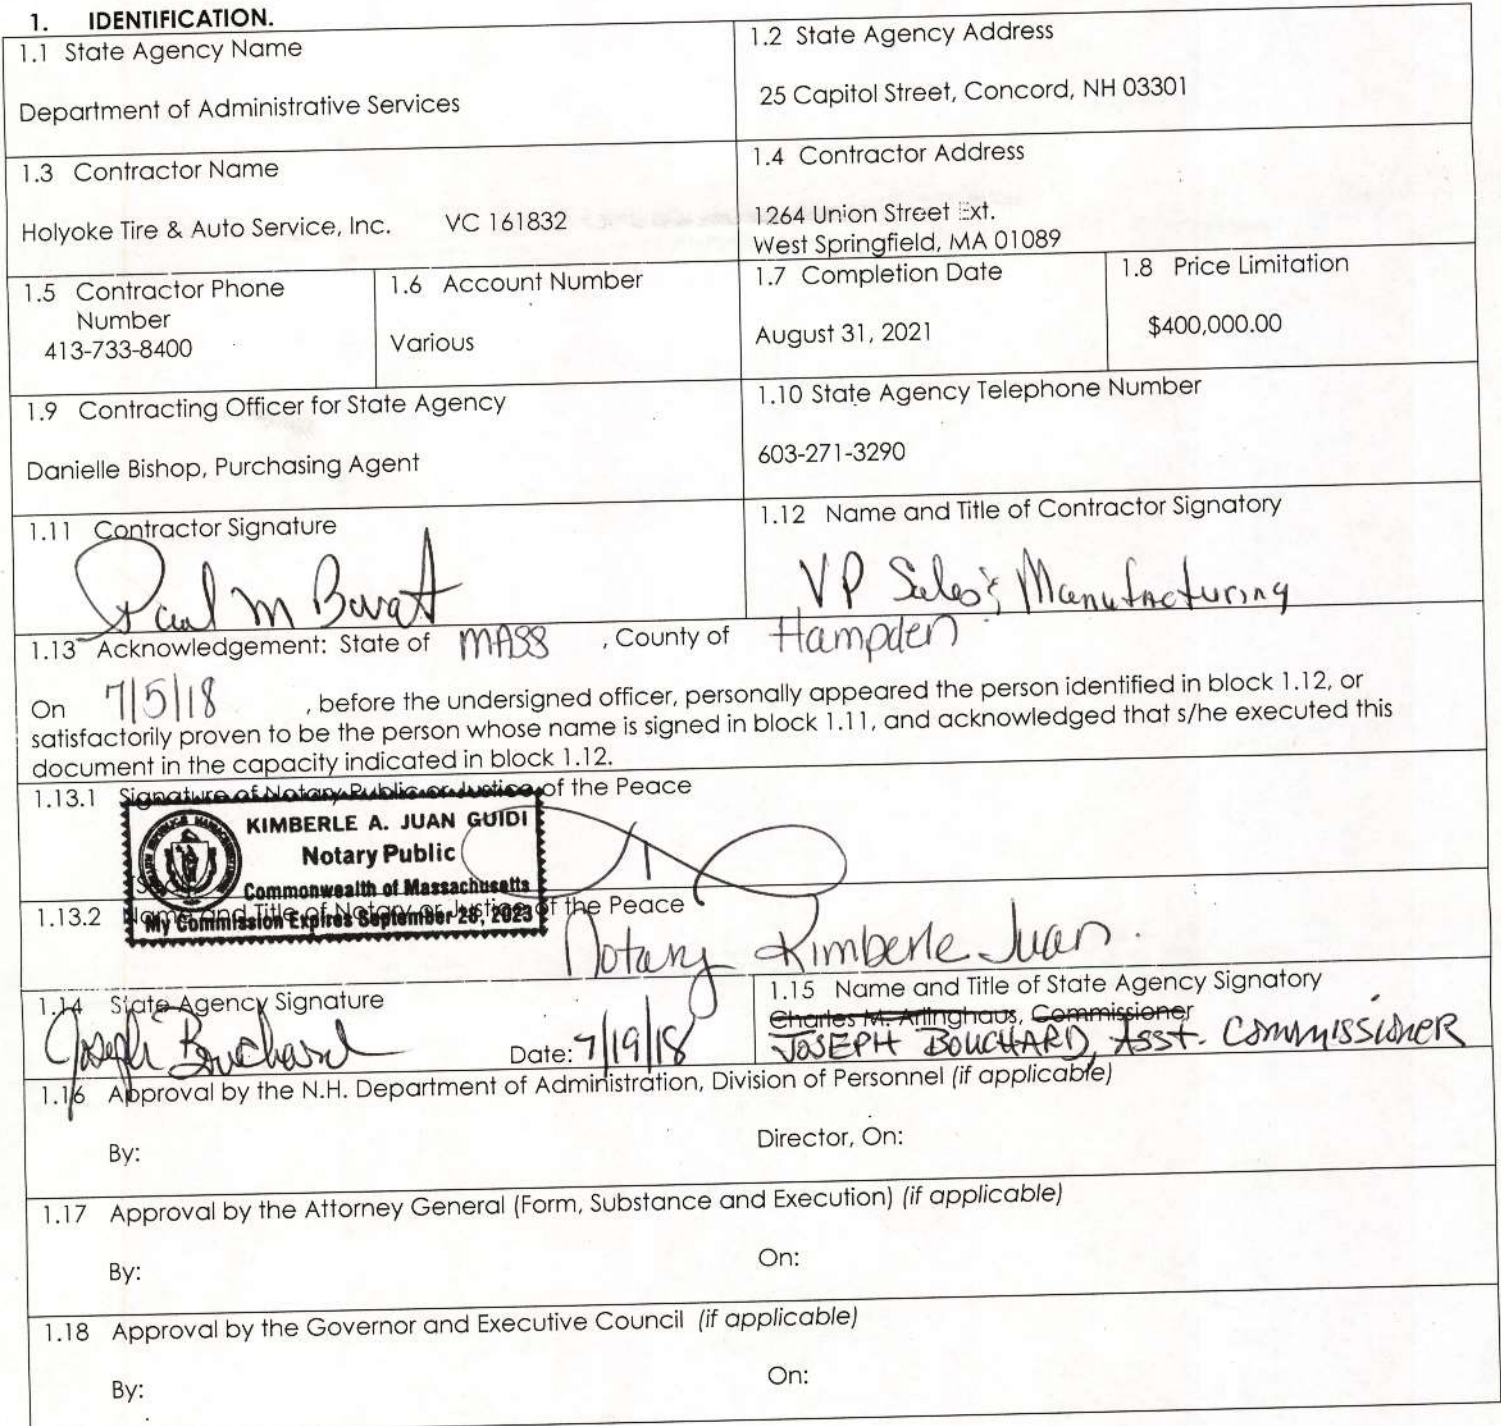 1. IDENTIFICATION.
1.1 State Agency Name
Department of Administrative Services
1.2 State Agency Address
25 Capitol Street, Concord, NH 03301
1.3 Contractor Name
Holyoke Tire & Auto Service, Inc. VC 161832
1.4 Contractor Address
1264 Union Street Ext.
West Springfield, MA 01089
1.5 Contractor Phone
Number
413-733-8400
1.6 Account Number
Various
1.7 Completion Date
August 31, 2021
1.8 Price Limitation
$400,000.00
1.9 Contracting Officer for State Agency
Danielle Bishop, Purchasing Agent
1.10 State Agency Telephone Number
603-271-3290
1.11 Contractor Signature
Paul M
1.12 Name and Title of Contractor Signatory
VP Sales & Manufacturing
1.13 Acknowledgement: State of MASS , County of Hampden
On 7/5/18 , before the undersigned officer, personally appeared the person identified in block 1.12, or
satisfactorily proven to be the person whose name is signed in block 1.11, and acknowledged that s/he executed this
document in the capacity indicated in block 1.12.
1.13.1 Signature of Notary Public or Justice of the Peace
KIMBERLE A. JUAN GUIDI
Notary Public
Commonwealth of Massachusetts
My Commission Expires September 28, 2023
1.13.2 Name and Title of Notary or Justice of the Peace
Notary Kimberle Juan.
1.14 State Agency Signature
Joseph Bouchard Date: 7/19/18
1.15 Name and Title of State Agency Signatory
Charles M. Arlinghaus, Commissioner
JOSEPH BOUCHARD, ASST. COMMISSIONER
1.16 Approval by the N.H. Department of Administration, Division of Personnel (if applicable)
By: Director, On:
1.17 Approval by the Attorney General (Form, Substance and Execution) (if applicable)
By: On:
1.18 Approval by the Governor and Executive Council (if applicable)
By: On: